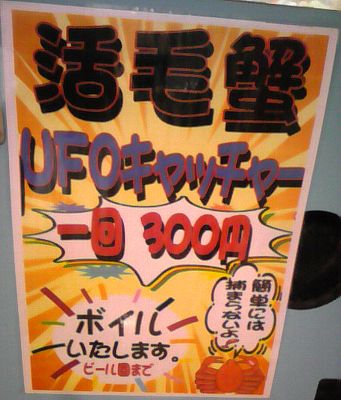 活毛蟹
UFOキャッチャー
一回 300円
簡単には
捕まらないよ!
ボイル
いたします。
ビール園まで